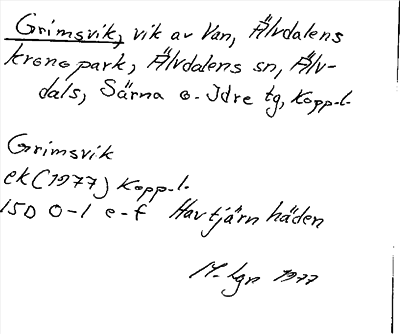 Grimsvik, vik av Van, Älvdalens
kronopark, Älvdalens sn, Älv-
dals, Särna o. Idre tg, Kopp.l.
Grimsvik
ek (1977) Kopp.l.
15D 0-1 e-f Havtjärnhäden
M. Lgn 1977